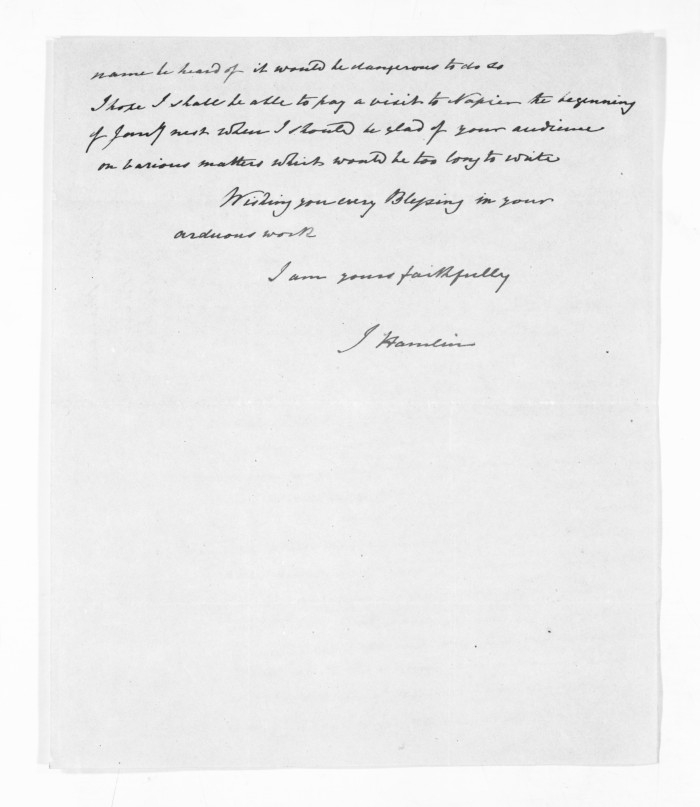 name be heard of it would be dangerous to do so
I hope I shall be able to pay a visit to Napier the beginning
of Jany next when I should be glad of your audience
on various matters which would be too long to write
Wishing you every Blessing in your
arduous work
I am yours faithfully
J Hamlin